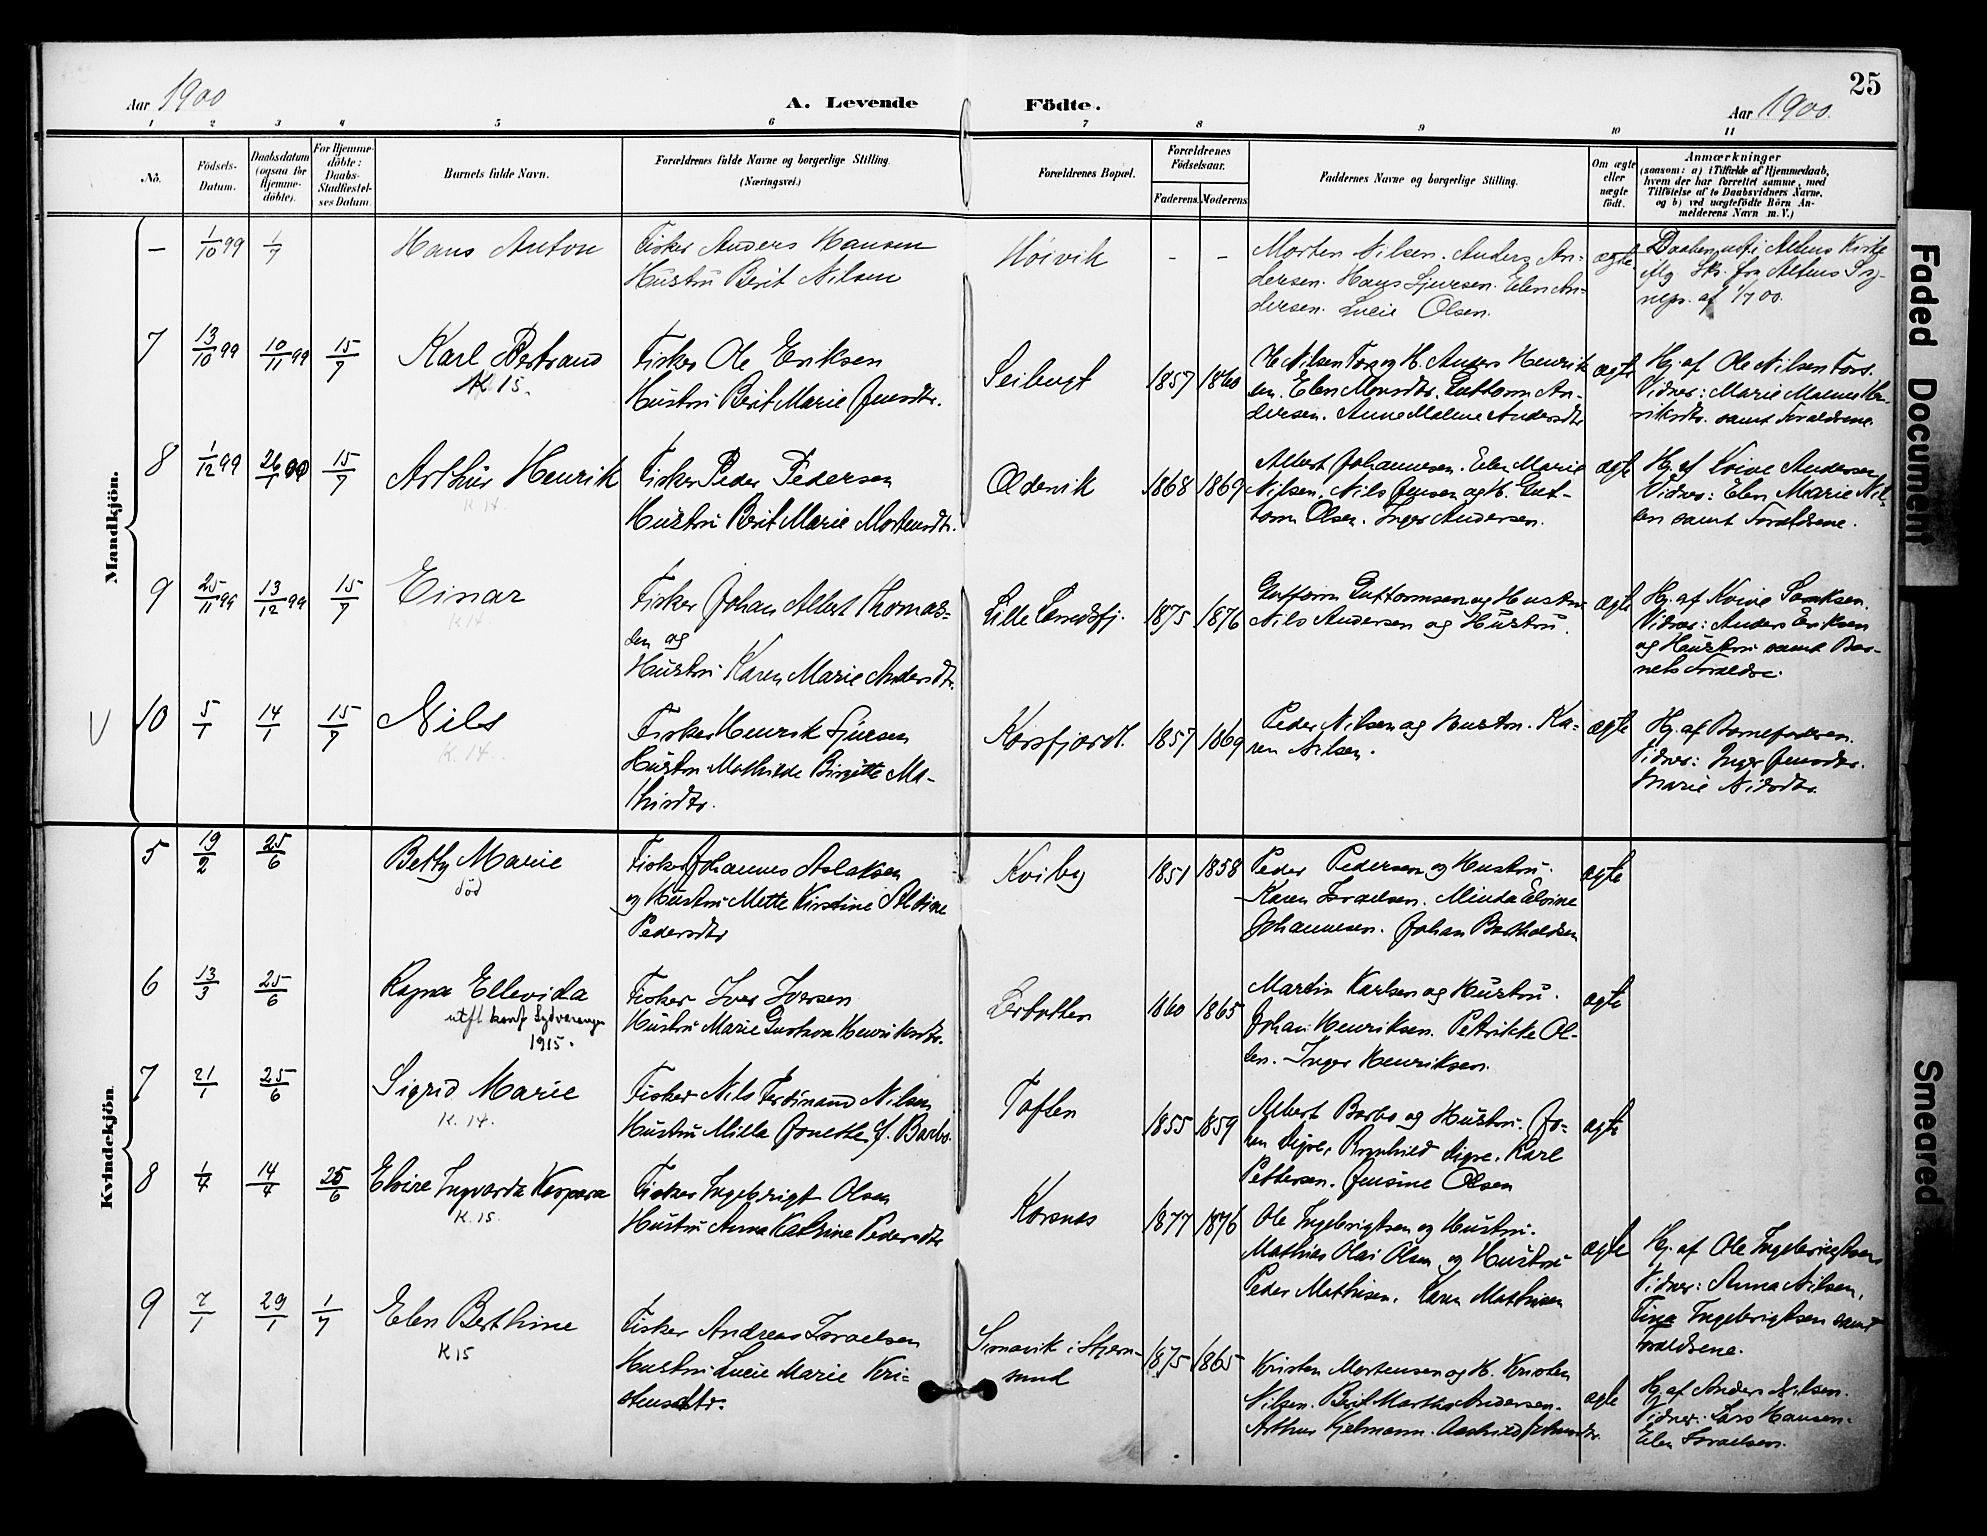 25
Aar 1900
A. Levende Födte.
Aar 1900.
1 2 3 4 5 6 7 8 9 10 11
No.
Födsels-
Datum.
Daabsdatum
(ogsaa for
Hjemme-
döbte).
For Hjemme-
döbte:
Daabs-
Stadfæstel-
ses Datum.
Barnets fulde Navn.
Forældrenes fulde Navne og borgerlige Stilling.
(Næringsvei.)
Forældrenes Bopæl.
Forældrenes
Födselsaar.
Faderens. Moderens.
Faddernes Navne og borgerlige Stilling.
Om ægte
eller
uægte
födt.
Anmærkninger
(saasom: a) i Tilfælde af Hjemmedaab,
hvem der har forrettet samme, med
Tilföielse af to Daabsvidners Navne,
og b) ved uægtefödte Börn An-
melderens Navn m. V.)
Mandkjön.
— 1/10 99 1/7
Hans Anton
Fisker Anders Hansen
Hustru Berit Nilsen
Höivik
- -
Morten Nilsen. Anders An-
dersen. Hans Sjursen. Elen An-
dersen. Lucie Olsen.
ægte
Kirke
fra Altens Sog-
nepr. af 1/7 00.
7 13/10 99 10/11 99 15/7
Karl Bertrand
K 15.
Fisker Ole Eriksen
Hustru Berit Marie Jensdtr.
Seibugt
1857 1860
O. Nilsen Fors og H. Anders Henrik-
sen. Elen Monsdtr. Guttorm An-
dersen. Anne Malene Andersdtr
ægte
Hj. af Ole Nilsen Fors.
Vidner: Marie Malene Hen-
riksdtr. samt Foraldrene.
8 1/12 99 26/1 00 15/7
Arthur Henrik
K 14
Fisker Peder Pedersen
Hustru Berit Marie Mortensdtr.
1868 1869
Albert Johannesen. Elen Marie
Nilsen. Nils Jensen og H. Gut-
torm Olsen. Inger Andersen.
ægte
Hj. af Andersen
Vidner: Elen Marie Nil-
sen samt Foraldrene.
9 25/11 99 13/12 99 15/7
Einar
K 14.
Fisker Johan Albert Thomas-
sen og
Hustru Karen Marie Andersdtr.
Lille Lerredsfj.
1875 1876
Guttorm Guttormsen og Hustru
Nils Andersen og Hustru.
ægte
Hj. af
Vidner: Anders Eriksen
og Hustru samt Bar-
nets Foraldre.
V 10 5/1 14/1 15/7
Nils
K. 14.
Fisker Henrik Sjursen
Hustru Mathilde Birgitte Ma-
thisdtr.
Korsfjordt.
1857 1869
Peder Nilsen og Hustru. Ka-
ren Nilsen.
ægte
Hj. af Barnefaderen.
Vidner: Inger Jensdtr.
Marie Nilsdtr.
Kvindekjön
5 19/2 25/6
Betty Marie
död
Fisker Johannes Aslaksen
og Hustru Mette Kirstine
Pedersdtr
Kviby
1851 1858
Peder Pedersen og Hustru.
Karen Israelsen. Minda Elvine
Johannesen. Johan Bartholdsen
ægte
6 13/3 25/6
Ragna Ellevida
utfl. konf. Sydvaranger
1915.
Fisker Iver Iversen
Hustru Marie Gustava Henriksdtr.
Lerbotten
1860 1865
Martin Karlsen og Hustru.
Johan Henriksen. Petrikke Ol-
sen. Inger Henriksen.
ægte
7 21/1 25/6
Sigrid Marie
K. 14.
Fisker Nils Ferdinand Nilsen
Hustru Milla Jonette f. Barbo.
Toften
1855 1859
Albert Barbo og Hustru. Jo-
han Digre, Ragnhild Digre. Karl
Pettersen. Jensine Olsen
ægte
8 1/4 14/4 25/6
Elvire Ingvarda Kaspara
K. 15.
Fisker Ingebrigt Olsen
Hustru Anna Kathrine Pedersdtr
Korsnes
1877 1876
Ole Ingebrigtsen og Hustru.
Mathias Olai Olsen og Hustru
Peder Mathisen. Karen Mathisen
ægte
Hj. af Ole Ingebrigtsen
Vidner: Anna Nilsen,
Tina Ingebrigtsen samt
Foraldrene.
9 7/1 29/1 1/7
Elen Berthine
K 15
Fisker Andreas Israelsen
Hustru Lucie Marie Kri-
stensdtr.
Simavik i Stjern-
sund
1875 1865
Kristen Mortensen og H. Kristen
Nilsen. Berit Martha Andersen.
Arthur Kjelmann.
ægte
Hj. af Anders Nilsen.
Vidner: Lars Hansen.
Elen Israelsen.
Faded Document
Smeared